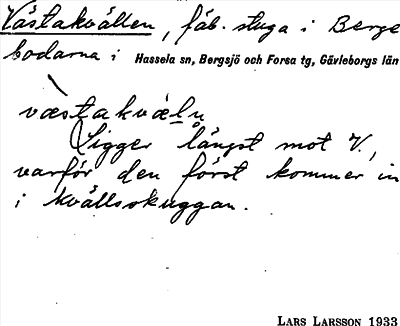 Västakvällen, fäb. stuga i Berge
bodarna i Hassela sn, Bergsjö och Forsa tg, Gävleborgs län
væstakvæln
Ligger längst mot V.,
varför den först kommer in
i kvällsskuggan.
LARS LARSSON 1933